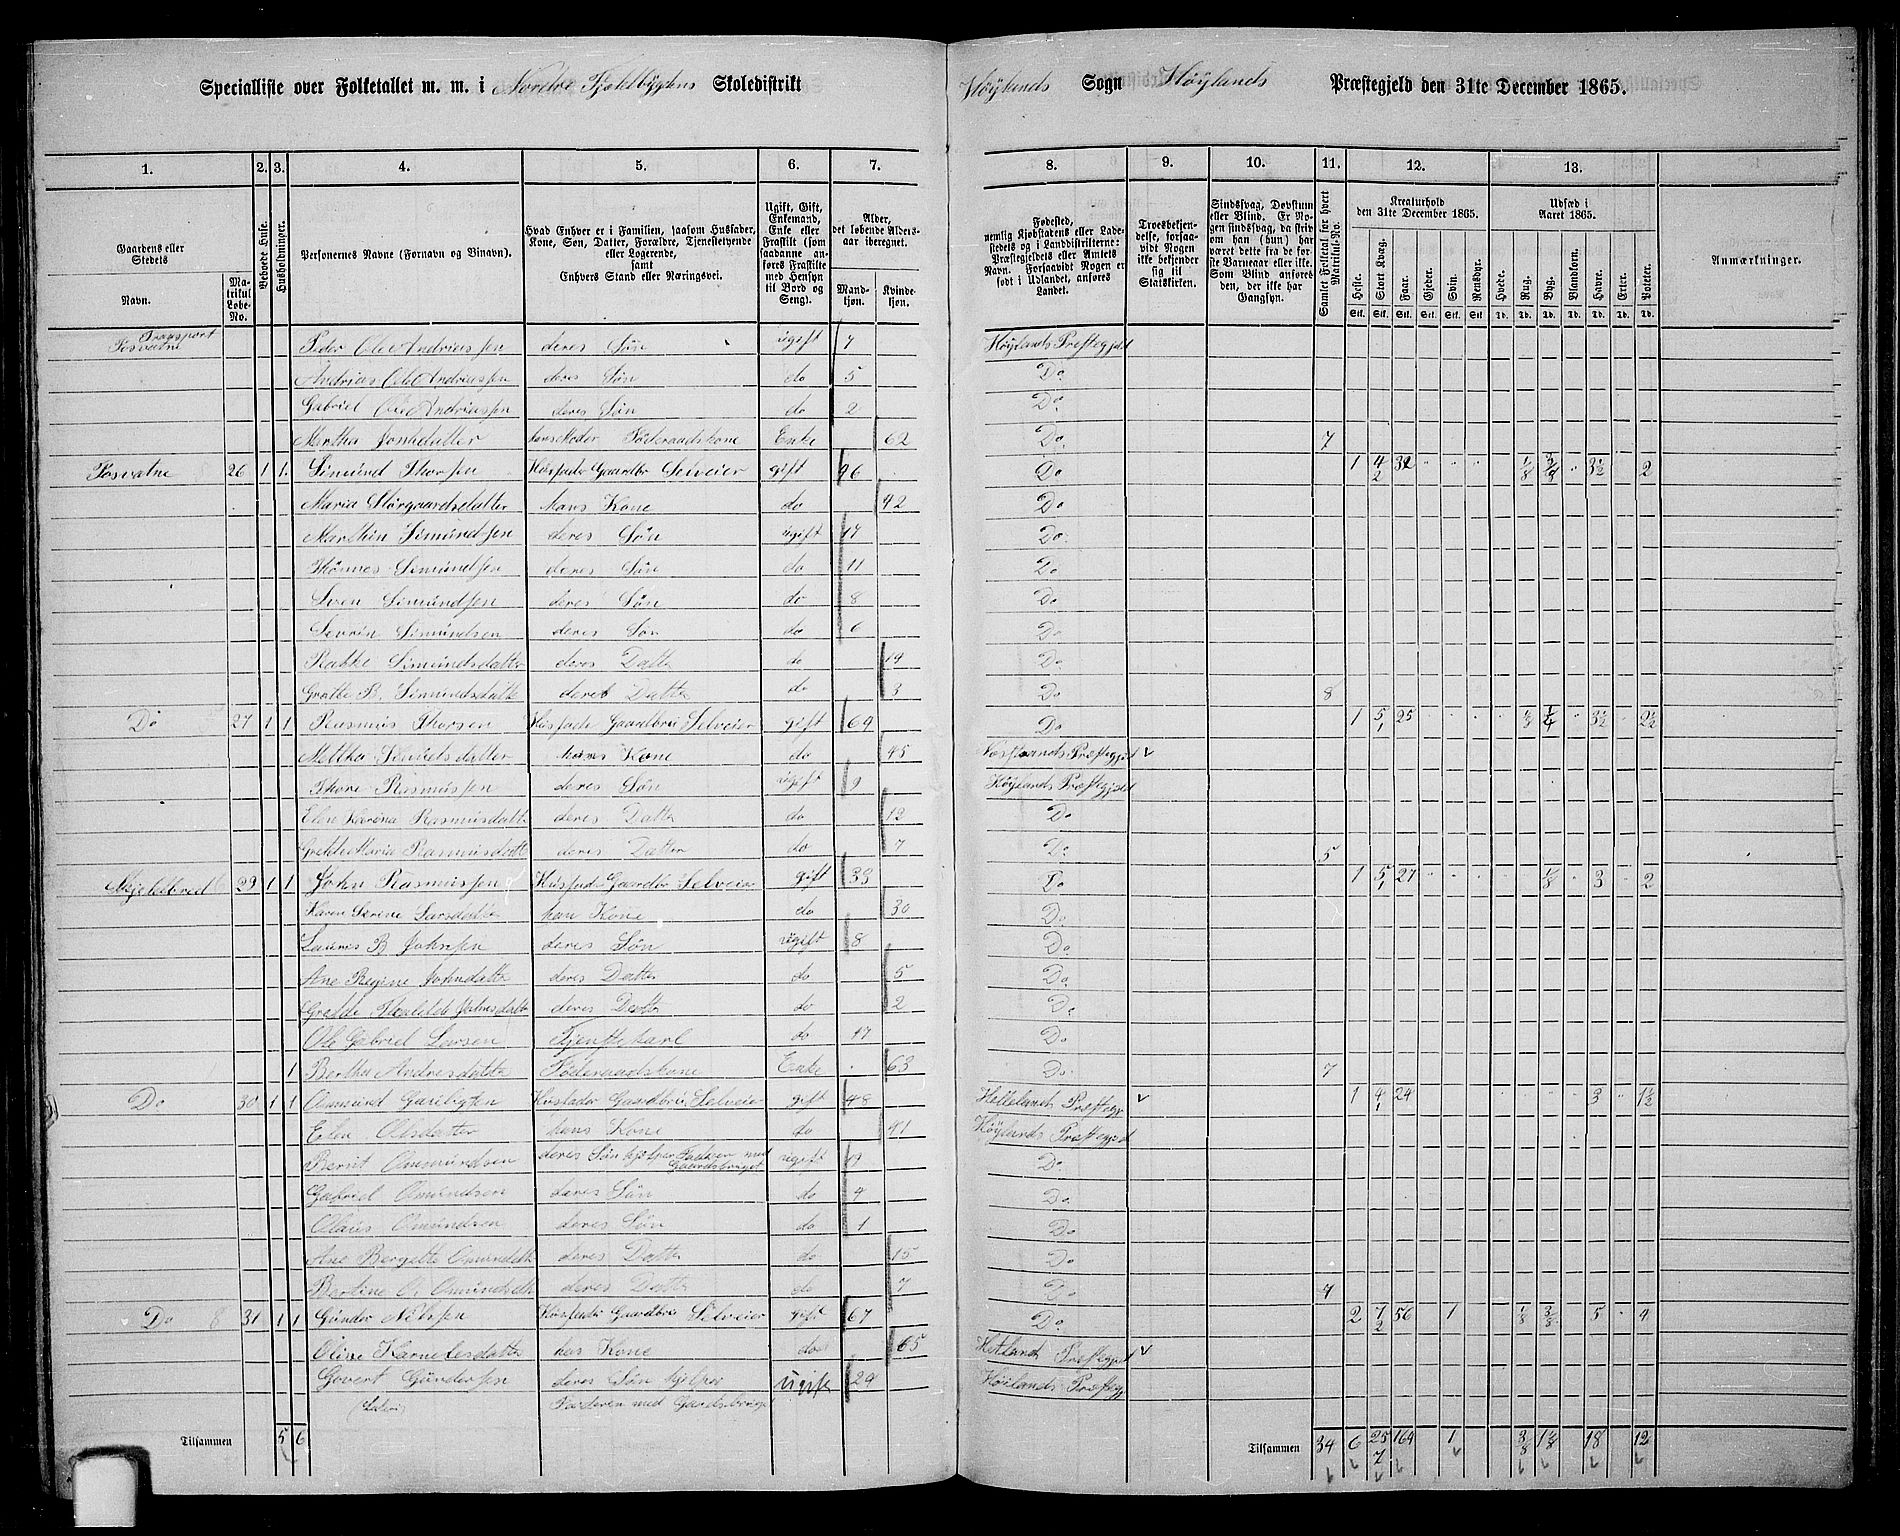 Specialliste over Folketallet m. m. i Nordre Fjeldbygdens Skoledistrikt Høylands Sogn Høylands Præstegjeld den 31te December 1865.
1. 2. 3. 4. 5. 6. 7. 8. 9. 10. 11. 12. 13.
Gaardens eller Steds
Navn.
Matrikul Løbe-No.
Beboede Huse.
Husholdninger.
Personernes Navne (Fornavn og Vinavn).
Hvad Enhver er i Familien, saasom Husfader, Kone, Søn, Datter, Forældre, Tjenestetyende eller Logerende, samt Enhvers Stand eller Næringsvei.
Ugift, Gift, Enkemand, Enke eller Fraskilt (som saadanne anføres Fraskilte med Hensyn til Bord og Seng).
Alder, det løbende Aldersaar iberegnet.
Mandkjøn. Kvindekjøn.
Fødested, nemlig Kjøbstadens eller Ladestedets og i Landdistrikterne: Præstegjeldets eller Amtets Navn. Forsaavidt Nogen er født i Udlandet, anføres Landet.
Troesbekjendelse, forsaavidt Nogen ikke bekjender sig til Statskirken.
Sindssvag, Døvstum eller Blind. Er Nogen sindssvag, da skrives om han (hun) har været dette fra de første Barneaar eller ikke. Som Blind anføres den, der ikke har Gangsyn.
Samlet Folketal for hvert Matrikul-No.
Kreaturhold den 31te December 1865.
Heste. Stort Kvæg. Faar. Gjeder. Svin. Rensdyr.
Udsæd i Aaret 1865.
Hvede. Rug. Byg. Blandkorn. Havre. Erter. Poteter.
Anmærkninger.
Transport Fosvatne Peder Ole Andriassen deres Søn ugift 7 Høylands Præstegjeld
Andrias Ole Andriassen deres Søn do 5 Do
Gabriel Ole Andriassen deres Søn do 2 Do
Martha Jonsdatter hans Moder Føderaadskone Enke 62 Do 7
Fosvatne 26 1 1 Simund Thorsen Husfader Gaardbr Selveier gift 46 Do 1 4/2 32 1/8 3/4 3½ 2
Maria Storgaardsdatter hans Kone do 42 Do
Marthin Simundsen deres Søn ugift 17 Do
Thønnes Simundsen deres Søn do 11 Do
Sven Simundsen deres Søn do 8 Do
Sevrin Simundsen deres Søn do 6 Do
Rakke Simundsdatter deres Datter do 19 Do
Grethe B. Simundsdatte deres Datter do 3 Do 8
Do 27 1 1 Rasmus Thorsen Husfader Gaardbru Selveier gift 69 Do 1 5/1 25 1/3 1/4 3½ 2½
Mettha hans Kone do 45 Præstegjel
Thore Rasmussen deres Søn ugift 9 Høylands Præstegjeld
Elen Karina Rasmusdatte deres Datter do 12 Do
Grethe Maria Rasmusdatt deres Datter do 7 Do 5
Skjeldbred 29 1 1 John Rasmussen Husfader Gaardbr Selveier gift 33 Do 1 5/1 27 1/8 3 2
Karen Serine Larsdatter han Kone do 30 Do
Lauris B Johnsen deres Søn ugift 8 Do
Ane Regine Johnsdatte deres Datter do 5 Do
Grethe Johnsdatte deres Datter do 2 Do
Ole Gabriel Larsen Tjenstekarl do 17 Do
1 Bertha Andresdatter Føderaadskone Enke 63 Do 7
Do 30 1 1 Omund Husfader Gaardbru Selveier gift 48 Hellelands Præstegj 1 4/1 24 3 1½
Elen Olsdatter hans Kone do 41 Høylands Præstegjel
Bernt Ommundsen deres Søn hjelper Faderen med Gaardsbruget ugift 19 Do
Gabriel Omundsen deres Søn do 4 Do
Olaus Omundsen deres Søn do 1 Do
Ane Bergitte Omundsdatt deres Datter do 15 Do
Bertine O. Omundsdatt deres Datter do 7 Do 7
Do 8 31 1 1 Gunder Nilssen Husfader Gaardbru Selveier gift 67 Do 2 7/2 56 1 1/8 3/8 5 4
Oline Karnelesdatte has Kone do 65 Hetlands Præstegjel
Govert Gundersen deres Søn hjelper Faderen med Gardsbruget ugift 29 Høilands Præstegj
Tilsammen 5 6 Tilsammen 34 6 25/7 164 1 3/8 1⅛ 18 12